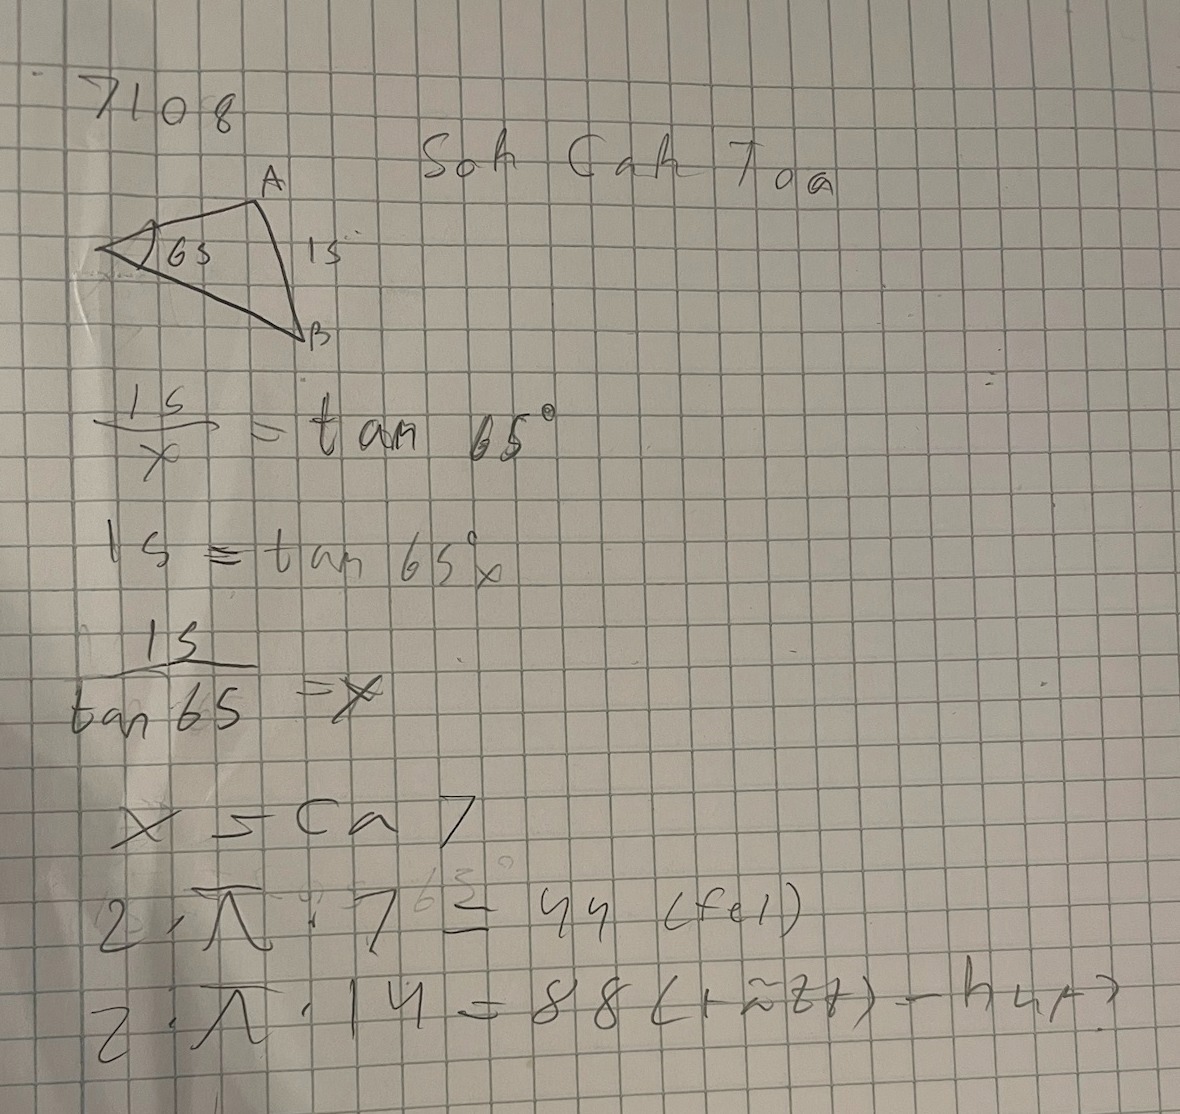 7108
Soh Cah Toa
A
65
15
B
15/x = tan 65°
15 = tan 65°x
15/tan 65 = x
x = ca 7
2 · π · 7 = 44 (fel)
2 · π · 14 = 88 (rätt) - hur?